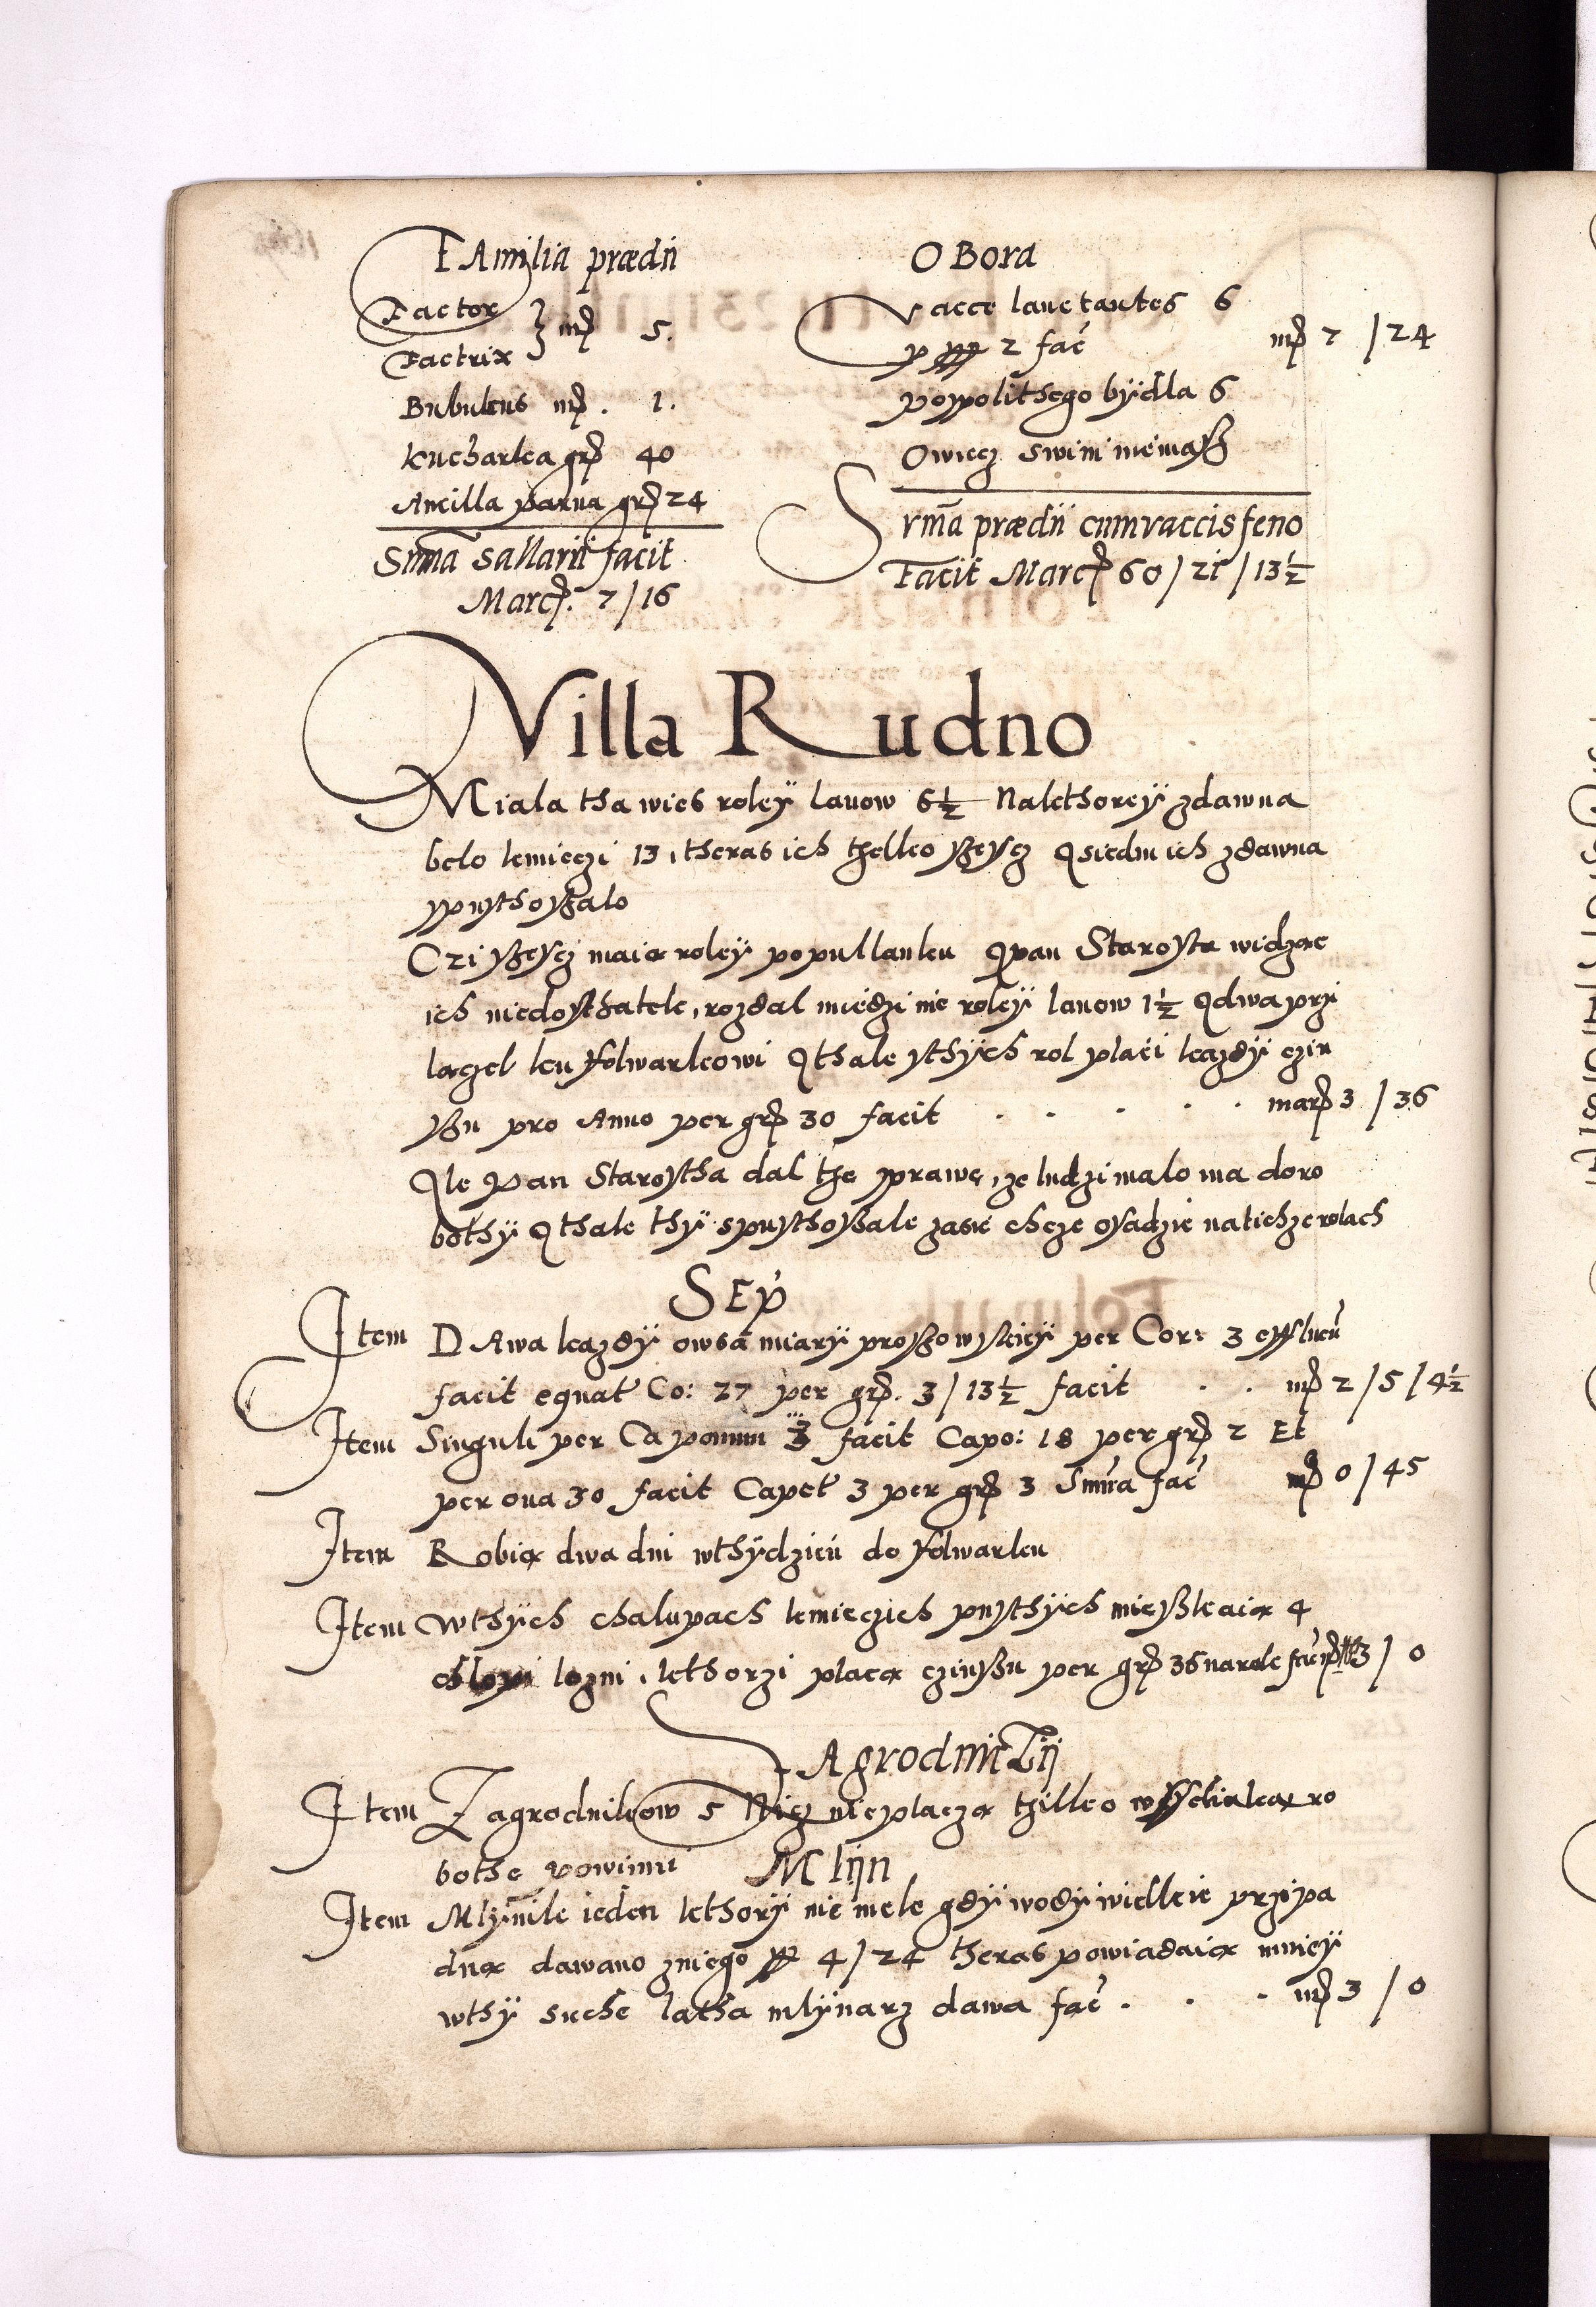 FAmilia prædii
Factor
Factrix
mr 5.
Bubulcus mr. 1.
kucharka gr 40
Ancilla parua gr 24
Sum̄a sallarii facit
Marc. 7/16
OBora
Vacce lactantes 6
p 2 fac̄ mr 2 /24
pospolithego bÿdla 6
Owiecz swini niemasz
Svm̄a prædii cum vaccis feno
Facit Marc 60/21/13½
Villa Rudno
Miala tha wies roleÿ lanow 6½ Na kthoreÿ zdawna
belo kmieczi 13, theras ich thelko szescz A siedm ich zdawna
spusthoszalo
Czi szescz maią roleÿ popullanku A pan Starosta widząc
ich niedosthatek, rozdal miedzi nie roleÿ lanow 1½ A dwa przi
lączel ku folwarkowi A thak sthÿch rol placi kazdÿ czin
szu pro Anno per gr 30 facit . . . . . mar 3 /36
Ale Pan Starostha dal the sprawę, ze ludzi malo ma doro
bothÿ A thak thÿ spusthoszale zasie chcze osadzic na tichze rolach
SEp
Item DAwa kazdÿ owsa miarÿ proszowskieÿ per Cor: 3
facit equat Co: 27 per gr. 3/13½ facit . . mr 2/5/4½
Item Singuli per Caponum 3 facit Capo: 18 per gr 2 Et
per oua 30 facit Capet 3 per gr 3 Sum̄a fac̄ mr 0/45
Item Robią dwa dni wthÿdzień do folwarku
Item Wthÿch chalupach kmieczich pusthÿch mieszkaią 4
lozni, kthorzi placą czinszu per gr 36 narok 3/0
ZAgrodniczÿ
Item Zagrodnikow 5 Nicz nieplaczą thilko wsselialeką ro
bothe powinni
Mlÿn
Item Mlÿnik ieden kthorÿ nie mele gdÿ wodÿ wielkie przipa
dną dawano zniego 4/24 theras powiadaią mnieÿ
wthÿ suche latha mlÿnarz dawa fac̄ . . . mr 3/0